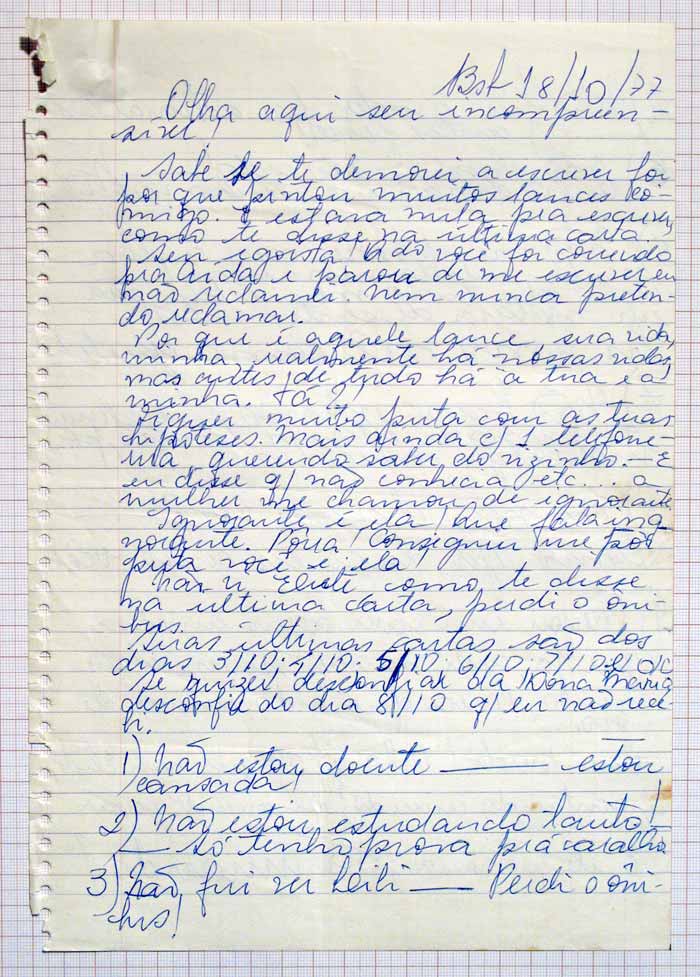 18/10/77
Olha aqui seu incompreen-
sível,
Sabe se te demorei a escrever foi
por que pintou muitos lances co-
migo. E estava nula pra escrever,
como te disse na última carta.
Seu egoista, qdo você foi correndo
pra Aída e parou de me escrever eu
não reclamei. Nem nunca preten-
do reclamar.
Por que é aquele lance, sua vida,
minha, realmente há nossas vidas,
mas antes de tudo há a tua e a
minha. Tá?
Fiquei muito puta com as tuas
hipóteses. Mais ainda c/ 1 telefone-
ma, querendo saber do vizinho. — E
eu disse q/ não conhecia etc... a
mulher me chamou de ignorante.
Ignorante é ela! Que fala ing
norante. Porra! Conseguiu me pôr
puta você e ela!
Não vi como te disse
na última carta, perdi o ôni-
bus.
Suas últimas cartas são dos
dias 3/10. 4/10. 5/10. 6/10. 7/10.
Se quizer desconfiar da Dona Maria
desconfie do dia 8/10 q/ eu não rece-
bi.
1) Não estou doente —— estou
cansada!
2) Não estou estudando tanto!
— só tenho prova prá caralho
3) Não fui ver —— Perdi o ôni-
bus!